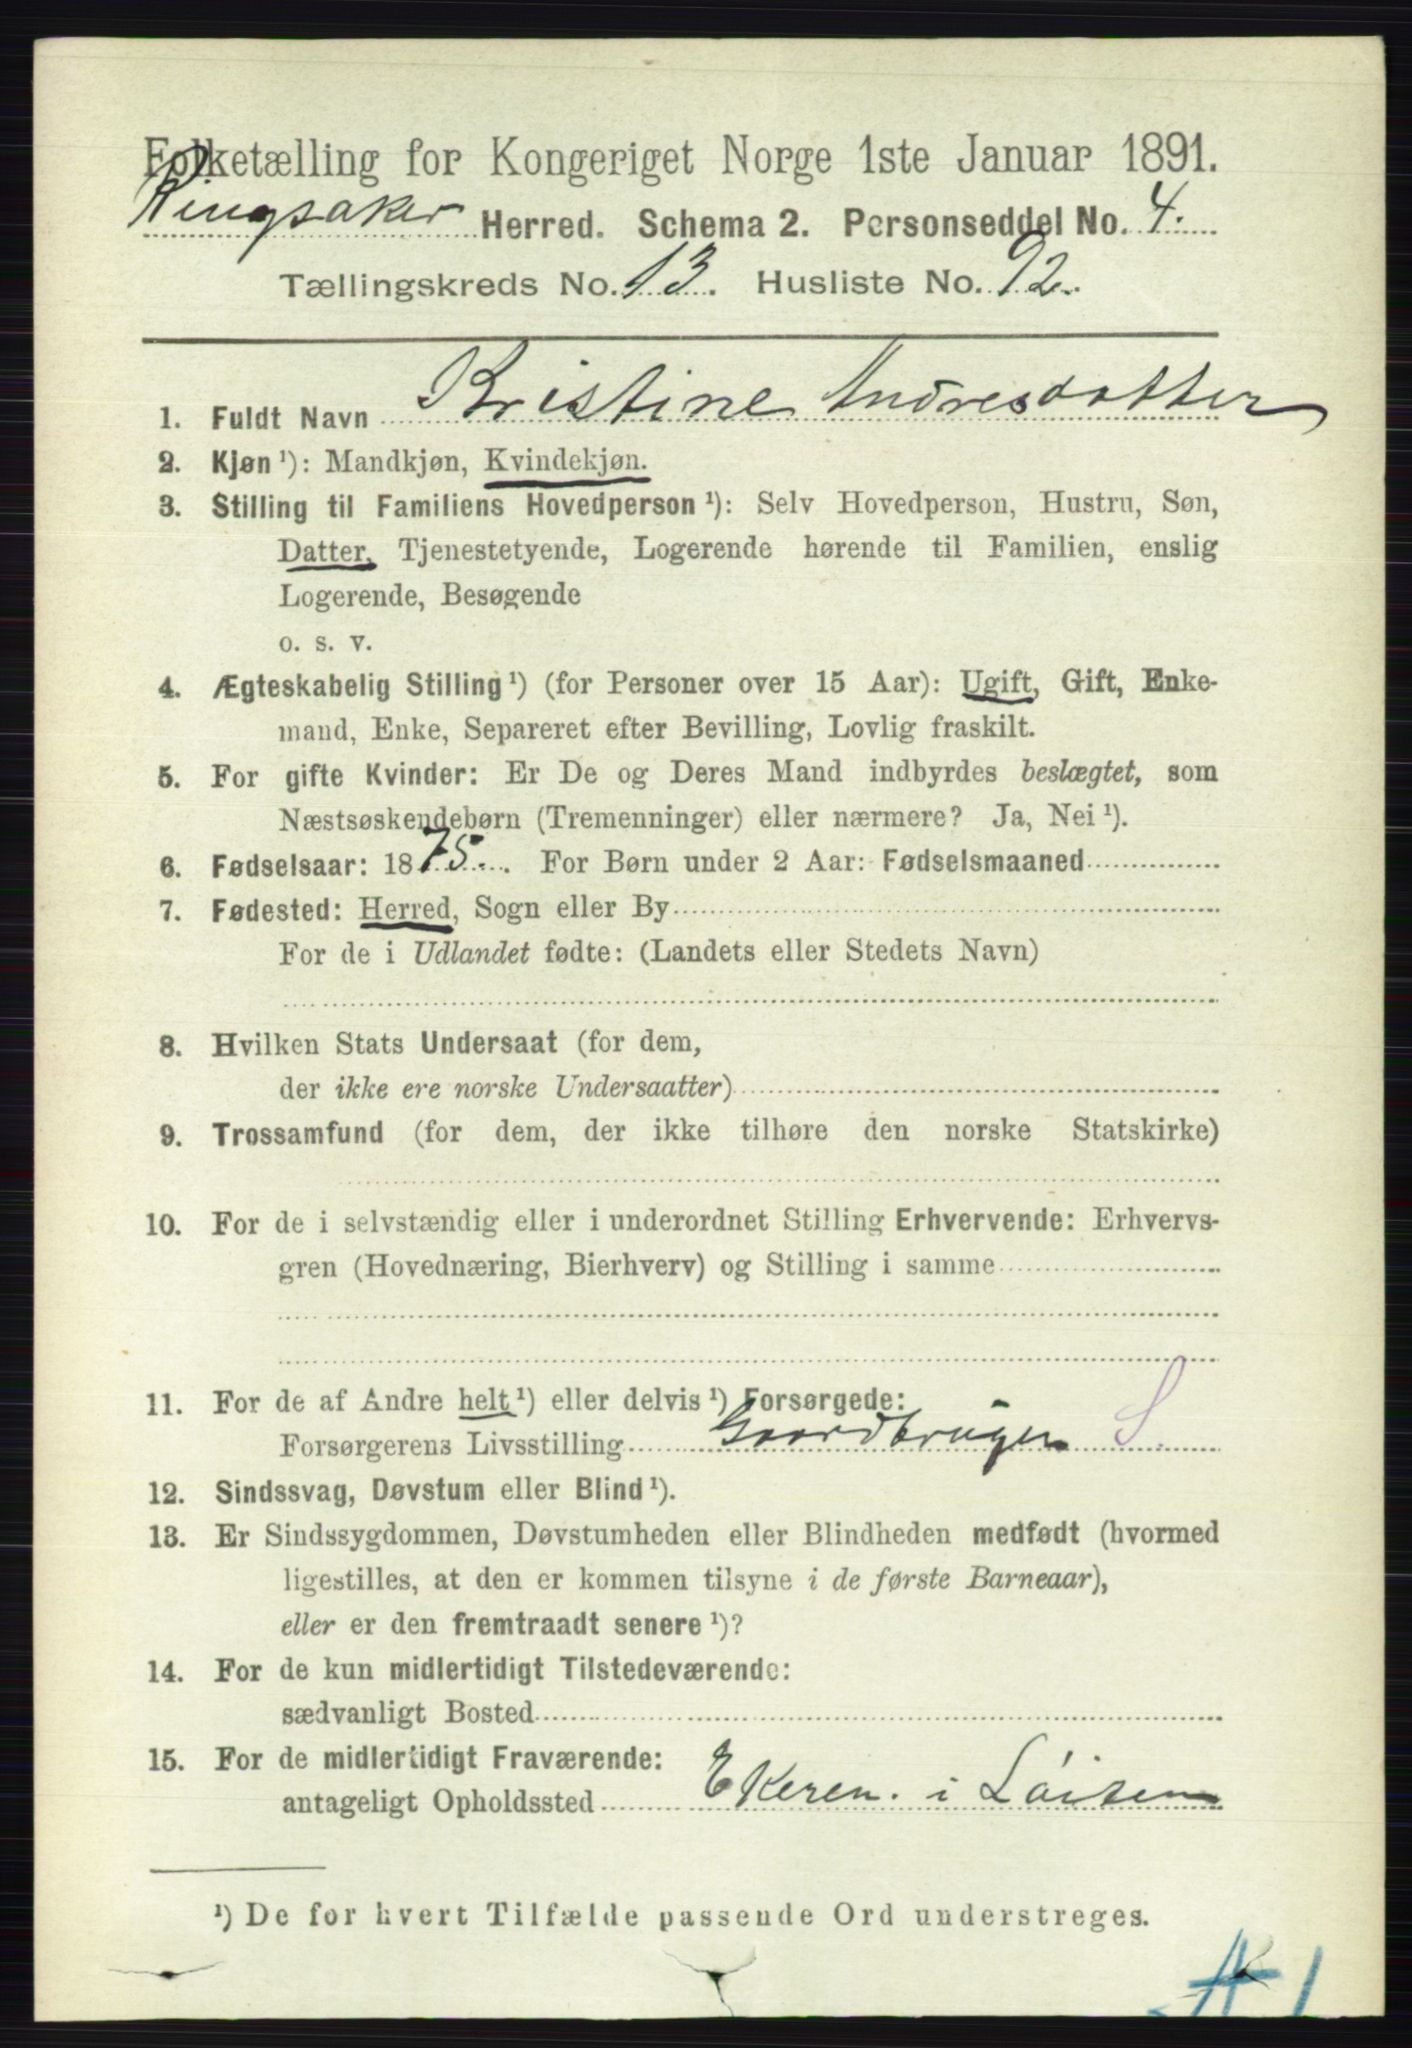 Folketælling for Kongeriget Norge 1ste Januar 1891.
Ringsaker Herred. Schema 2. Personseddel No. 4.
Tællingskreds No. 13. Husliste No. 92.
1. Fuldt Navn Kristine Andresdatter
2. Kjøn ¹): Mandkjøn, Kvindekjøn.
3. Stilling til Familiens Hovedperson ¹): Selv Hovedperson, Hustru, Søn,
Datter, Tjenestetyende, Logerende hørende til Familien, enslig
Logerende, Besøgende
o. s. v.
4. Ægteskabelig Stilling ¹) (for Personer over 15 Aar): Ugift, Gift, Enke-
mand, Enke, Separeret efter Bevilling, Lovlig fraskilt.
5. For gifte Kvinder: Er De og Deres Mand indbyrdes beslægtet, som
Næstsøskendebørn (Tremenninger) eller nærmere? Ja, Nei ¹).
6. Fødselsaar: 1875. For Børn under 2 Aar: Fødselsmaaned
7. Fødested: Herred, Sogn eller By
For de i Udlandet fødte: (Landets eller Stedets Navn)
8. Hvilken Stats Undersaat (for dem,
der ikke ere norske Undersaatter)
9. Trossamfund (for dem, der ikke tilhøre den norske Statskirke)
10. For de i selvstændig eller i underordnet Stilling Erhvervende: Erhvervs-
gren (Hovednæring, Bierhverv) og Stilling i samme
11. For de af Andre helt ¹) eller delvis ¹) Forsørgede:
Forsørgerens Livsstilling Gaardbruger S.
12. Sindssvag, Døvstum eller Blind ¹).
13. Er Sindssygdommen, Døvstumheden eller Blindheden medfødt (hvormed
ligestilles, at den er kommen tilsyne i de første Barneaar),
eller er den fremtraadt senere ¹)?
14. For de kun midlertidigt Tilstedeværende:
sædvanligt Bosted
15. For de midlertidigt Fraværende:
antageligt Opholdssted Ekeren. i Løiten
¹) De for hvert Tilfælde passende Ord understreges.